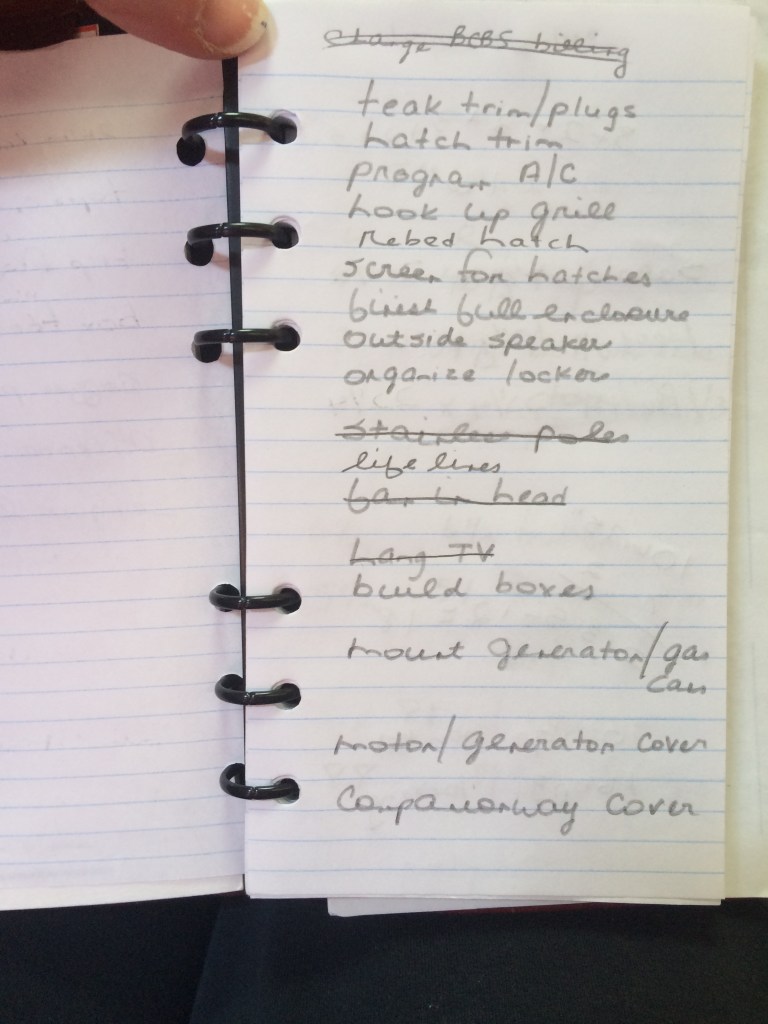 change BCBS billing
teak trim/plugs
hatch trim
program A/C
hook up grill
Rebed hatch
screen for hatches
finish full enclosure
outside speaker
organize locker
stainless poles
life lines
fan in head
hang TV
build boxes
mount generator/gas
can
motor/generator cover
companionway cover